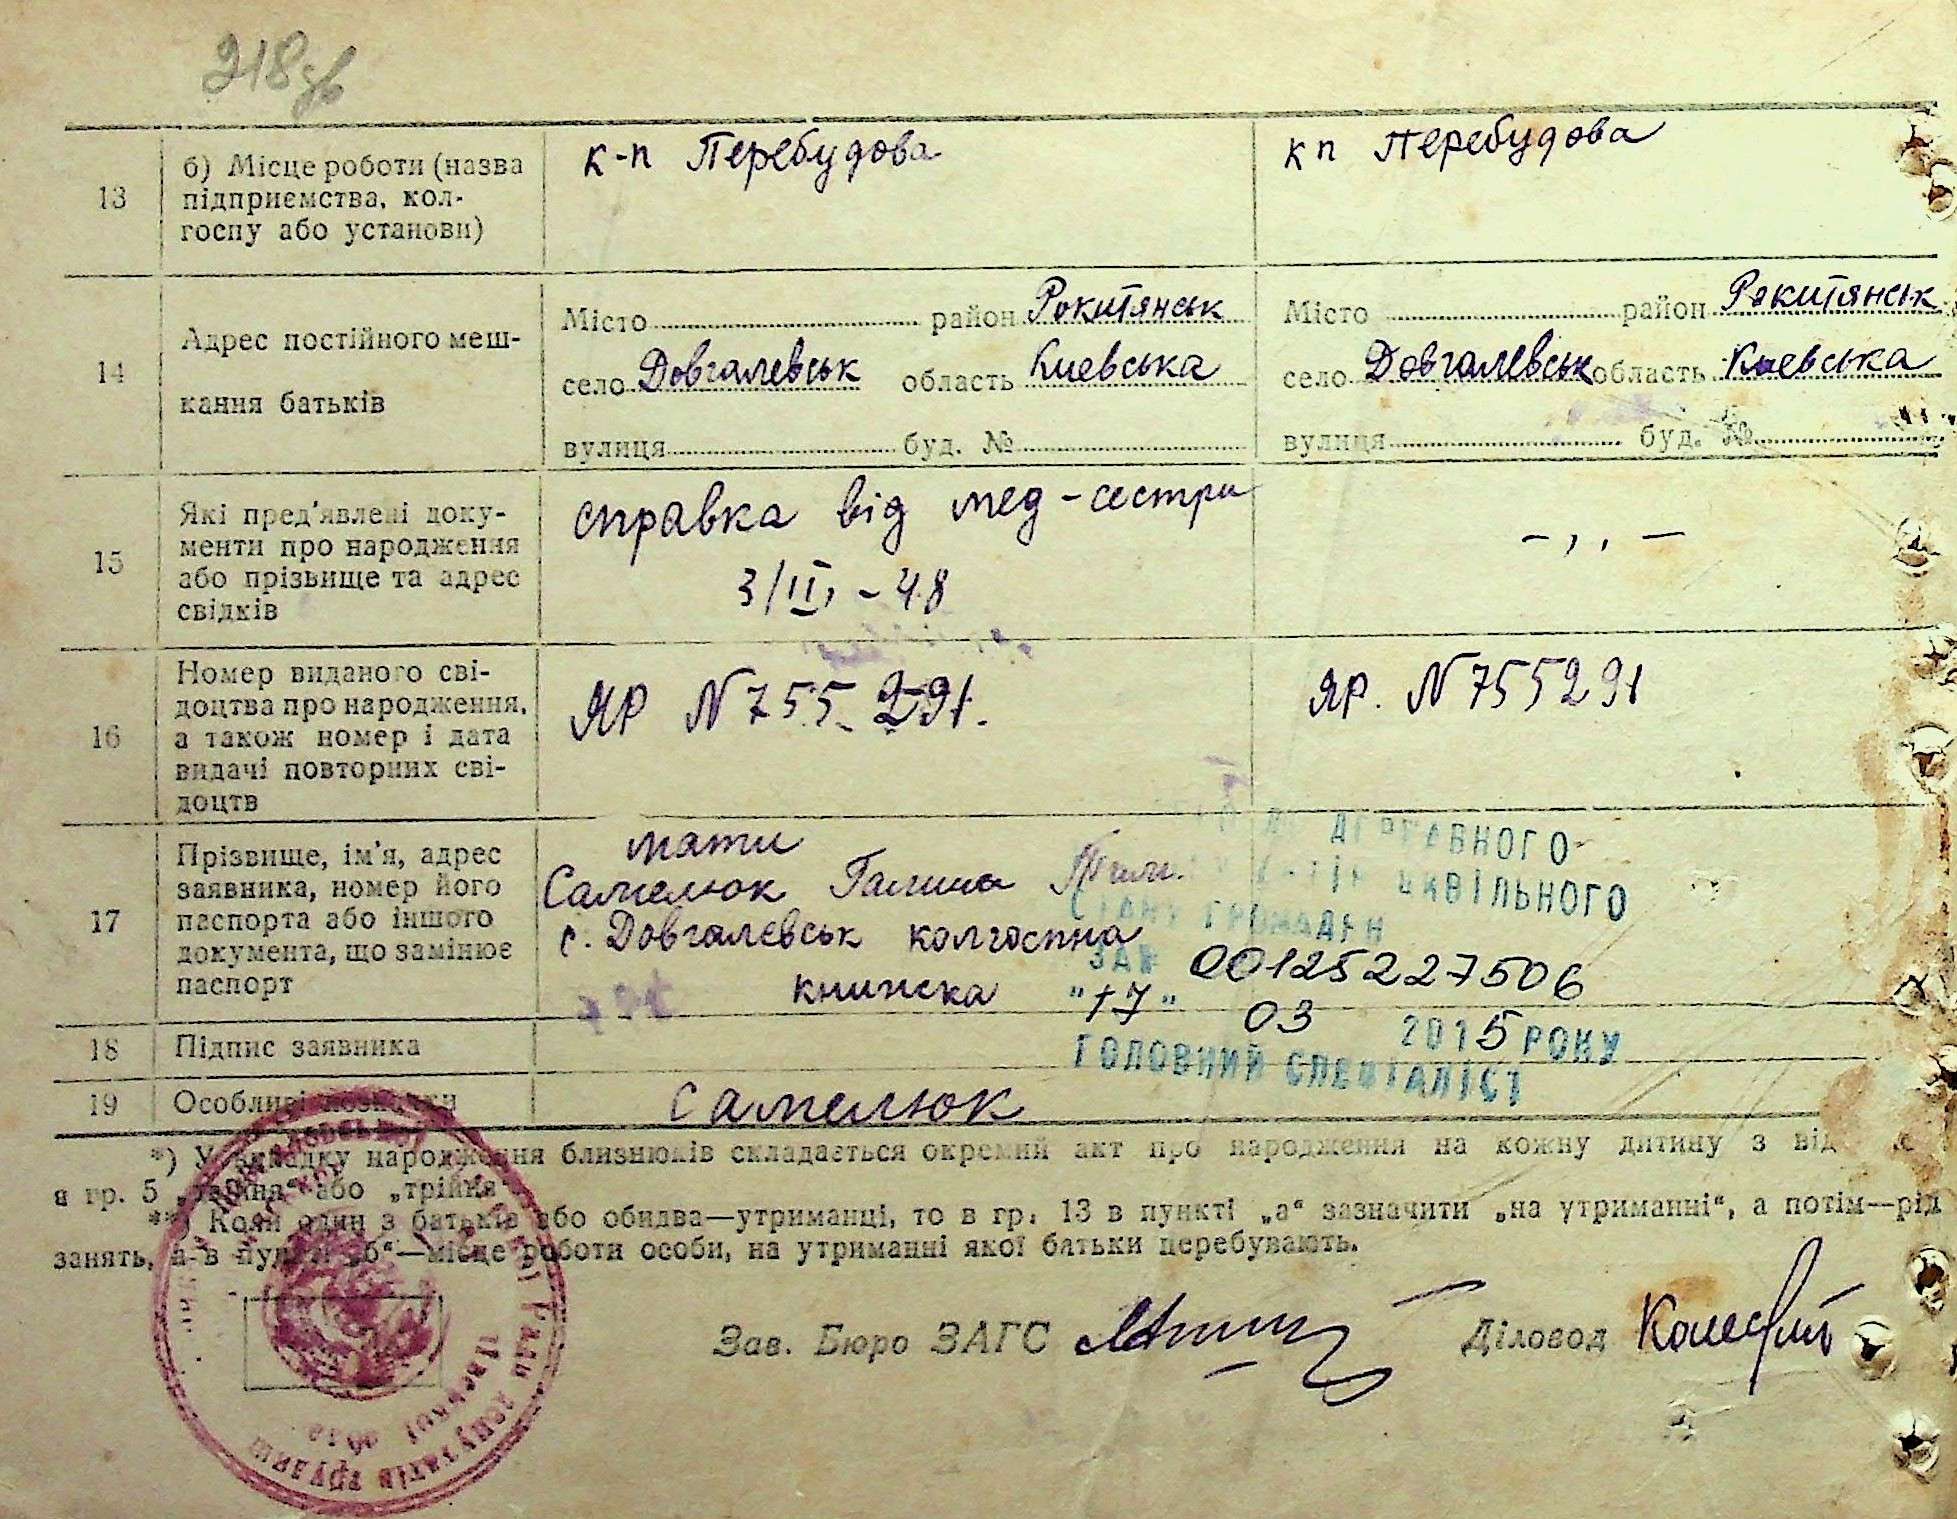 218зв
13
б) Місце роботи (назва
підприємства, кол-
госпу або установи)
к-п Перебудова
кп Перебудова
14
Адрес постійного меш-
кання батьків
Місто район Рокитянськ
село Довгалевськ область Киевська
вулиця буд. №
Місто район Рокитянськ
село Довгалевськ область Киевська
вулиця буд. №
15
Які пред'явлені доку-
менти про народження
або прізвище та адрес
свідків
справка від мед-сестри
3/II, -48
- , , -
16
Номер виданого сві-
доцтва про народження,
а також номер і дата
видачі повторних сві-
доцтв
ЯР N 755 291.
ЯР. N 755291
17
Прізвище, ім'я, адрес
заявника, номер його
паспорта або іншого
документа, що замінює
паспорт
мати
Самелюк Галина
с. Довгалєвськ колгоспна
книжка
ДЕРЖАВНОГО
ЦИВІЛЬНОГО
СТАНУ ГРОМАДЯН
ЗА № 00125227506
"17" 03 2015 РОКУ
ГОЛОВНИЙ СПЕЦІАЛІСТ
18
Підпис заявника
19
Особливі познач
Самелюк
*) У випадку народження близнюків складається окремий акт про народження на кожну дитину з від
в гр. 5 „двійня“ або „трійня“.
**) Коли один з батьків або обидва—утриманці, то в гр. 13 в пункті „а“ зазначити „на утриманні“, а потім—рід
занять, а в пункті „б“—місце роботи особи, на утриманні якої батьки перебувають.
Зав. Бюро ЗАГС
Діловод
Ради депутатів трудящ